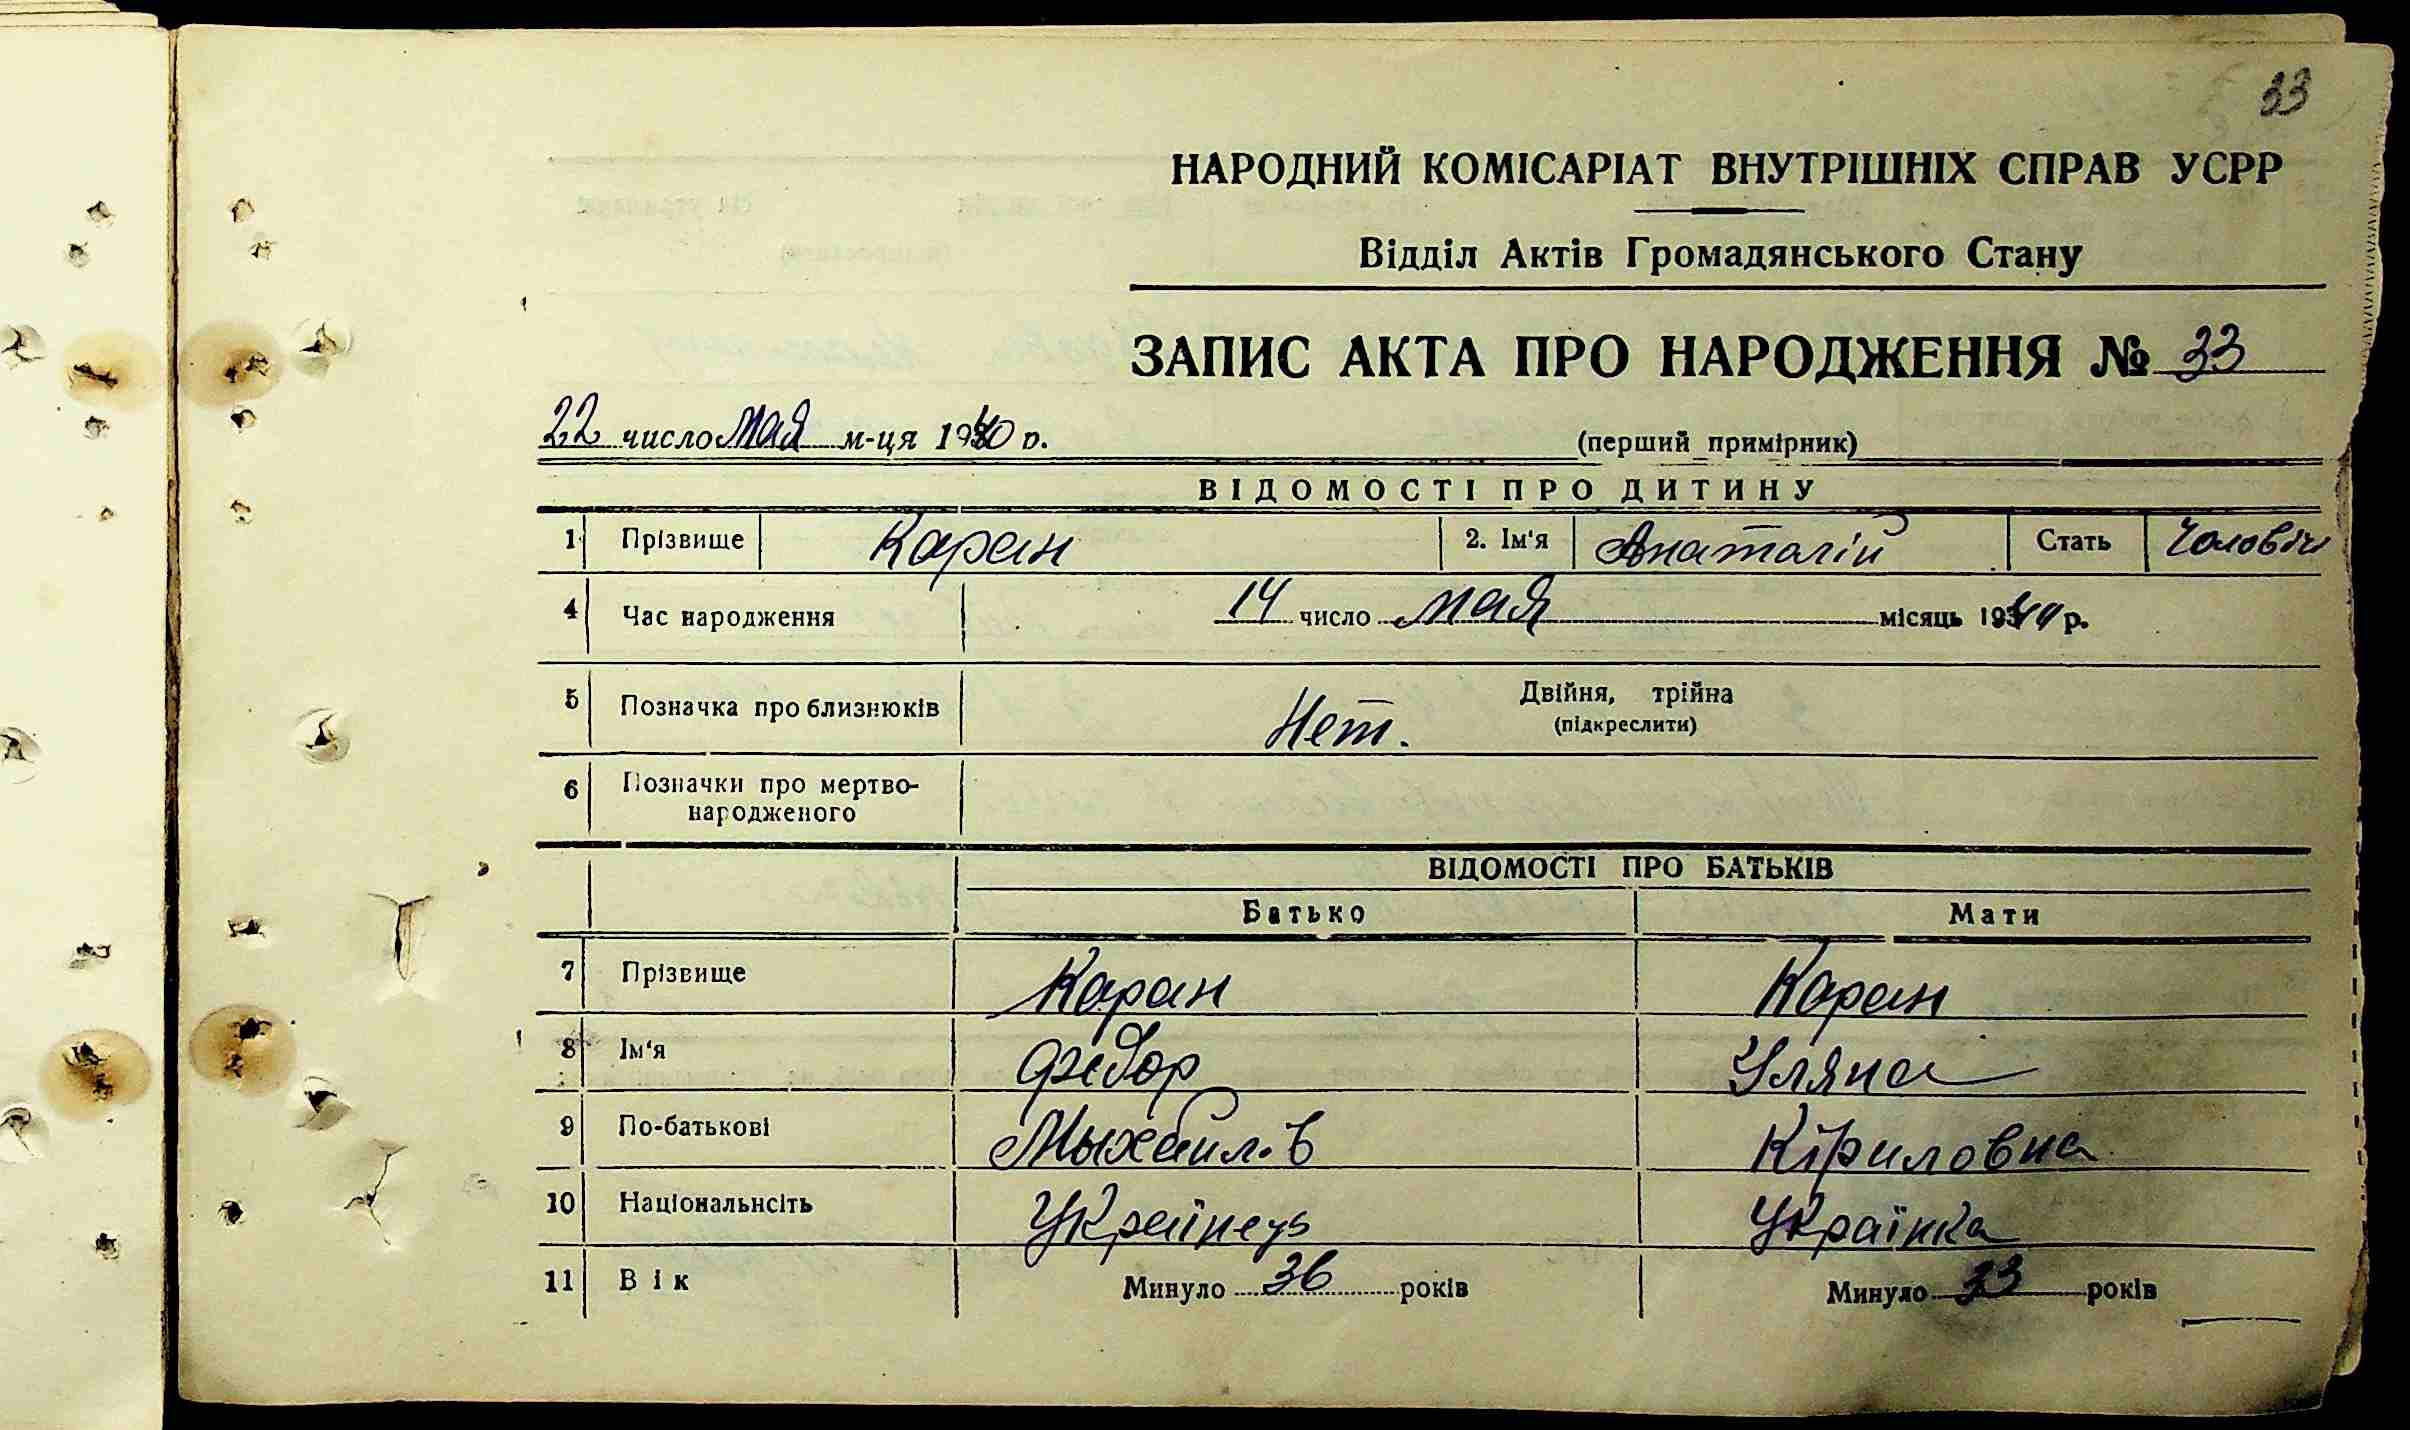 33
НАРОДНИЙ КОМІСАРІАТ ВНУТРІШНІХ СПРАВ УСРР
Відділ Актів Громадянського Стану
ЗАПИС АКТА ПРО НАРОДЖЕННЯ № 33
22 число мая м-ця 1940 р.
(перший примірник)
ВІДОМОСТІ ПРО ДИТИНУ
1 Прізвище Каран 2. Ім'я Анаталій Стать Чоловіч
4 Час народження 14 число мая місяць 194 р.
5 Позначка про близнюків Нет. Двійня, трійна
(підкреслити)
6 Позначки про мертво-
народженого
ВІДОМОСТІ ПРО БАТЬКІВ
Батько Мати
7 Прізвище Каран Каран
8 Ім'я Федор Уляна
9 По-батькові Мыхайл.в Кіриловна
10 Національнсіть Українець Українка
11 Вік Минуло 36 років Минуло 33 років